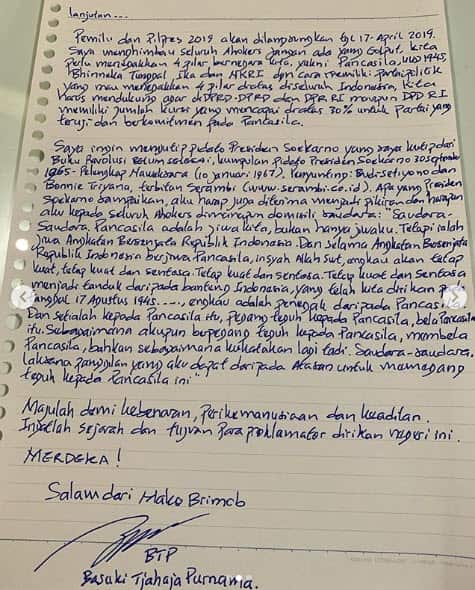 lanjutan...
Pemilu dan Pilpres 2019 akan dilangsungkan tgl 17-April 2019.
Saya menghimbau seluruh Ahokers jangan ada yang Golput, kita
perlu menegakkan 4 pilar bernegara kita, yakni Pancasila, UUD 1945,
Bhinneka Tunggal Ika dan NKRI dgn cara memiliki partai politik
yang mau menegakkan 4 pilar diatas diseluruh Indonesia. Kita
harus mendukung agar di DPRD, DPRD dan DPR RI maupun DPD RI
memiliki jumlah kursi yang mencapai diatas 30% untuk Partai yang
teruji dan berkomitmen pada Pancasila.
Saya ingin mengutip pidato Presiden Soekarno yang saya kutip dari
Buku Revolusi Belum selesai, kumpulan pidato Presiden Soekarno 30 september
1965- Pelengkap Nawaksara (10 januari 1967). Penyunting: Budi setiyono dan
Bonnie Triyana, terbitan Serambi (www.serambi.co.id). Apa yang Presiden
Soekarno sampaikan, aku harap juga diterima menjadi pikiran dan harapan
aku kepada seluruh Ahokers dimanapun domisili saudara: "Saudara-
Saudara Pancasila adalah jiwa kita, bukan hanya jiwaku. Tetapi ialah
jiwa Angkatan Bersenjata Republik Indonesia. Dan selama Angkatan Bersenjata
Republik Indonesia berjiwa Pancasila, insyah Allah Swt, engkau akan tetap
kuat, tetap kuat dan sentosa. Tetap kuat dan sentosa. Tetap kuat dan sentosa
menjadi tanduk daripada banteng Indonesia, yang telah kita dirikan pada
tanggal 17 Agustus 1945....., engkau adalah penegak daripada Pancasila
Dan setialah kepada Pancasila itu, pegang teguh kepada Pancasila, bela Pancasila
itu. Sebagaimana akupun berpegang teguh kepada Pancasila, membela
Pancasila, bahkan sebagaimana kukatakan lagi tadi. Saudara-saudara,
laksana panggilan yang aku dapat daripada Atasan untuk memegang
teguh kepada Pancasila ini"
Majulah demi kebenaran, Perikemanusiaan dan keadilan.
Ingatlah sejarah dan tujuan Para proklamator dirikan negeri ini.
MERDEKA!
Salam dari Mako Brimob
BTP
Basuki Tjahaja Purnama.